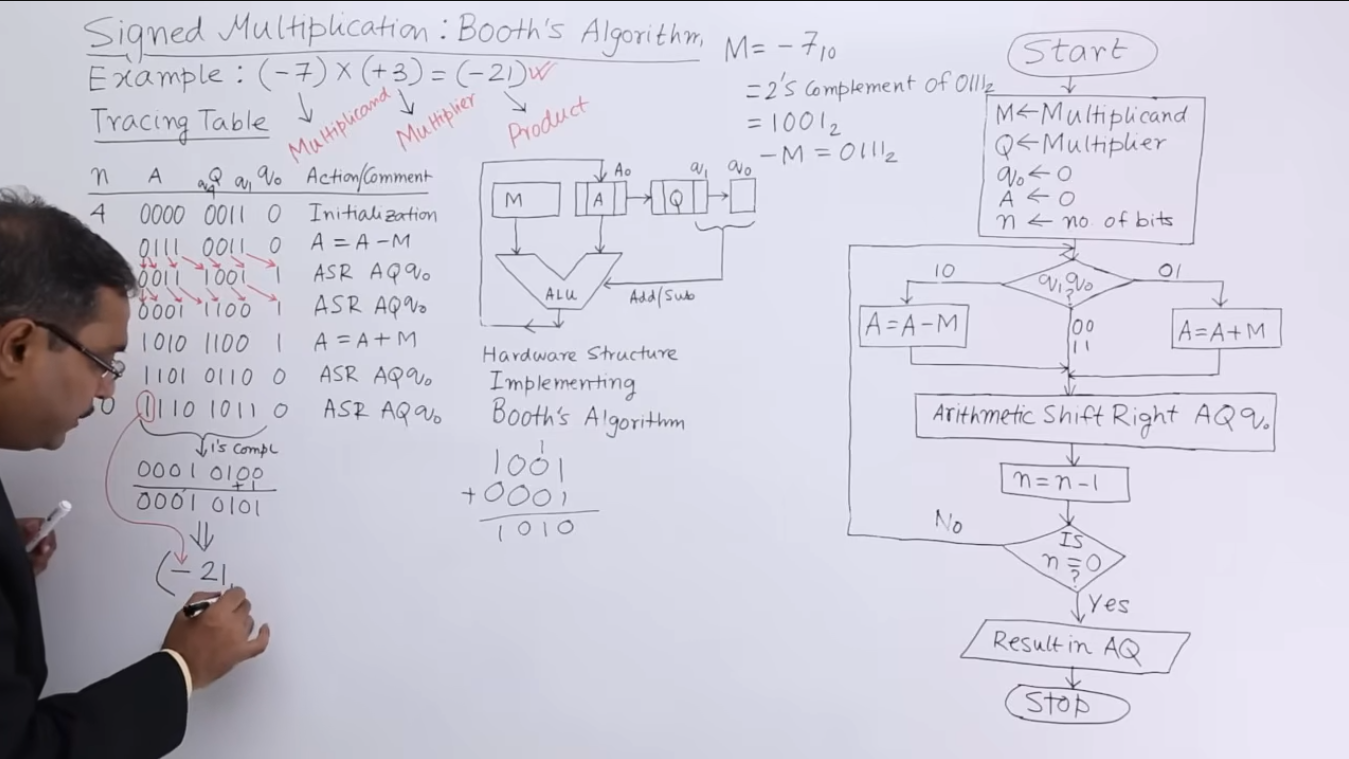 Signed Multiplication : Booth's Algorithm.
Example : (-7) × (+3) = (-21)
Multiplicand
Multiplier
Product
Tracing Table
n A Q q₁ q₀ Action/Comment
4 0000 0011 0 Initialization
0111 0011 0 A = A - M
0011 1001 1 ASR AQq₀
0001 1100 1 ASR AQq₀
1010 1100 1 A = A + M
1101 0110 0 ASR AQq₀
0 1110 1011 0 ASR AQq₀
1's Compl
0001 0100
+1
0001 0101
(- 21
M = -7₁₀
= 2's Complement of 0111₂
= 1001₂
-M = 0111₂
A₀ q₁ q₀
M A Q
ALU
Add/Sub
Hardware Structure
Implementing
Booth's Algorithm
1
1001
+0001
1010
Start
M ← Multiplicand
Q ← Multiplier
q₀ ← 0
A ← 0
n ← no. of bits
10 q₁q₀ 01
?
A = A - M
00
11
A = A + M
Arithmetic Shift Right AQq₀
n = n - 1
No
IS
n = 0
?
Yes
Result in AQ
Stop